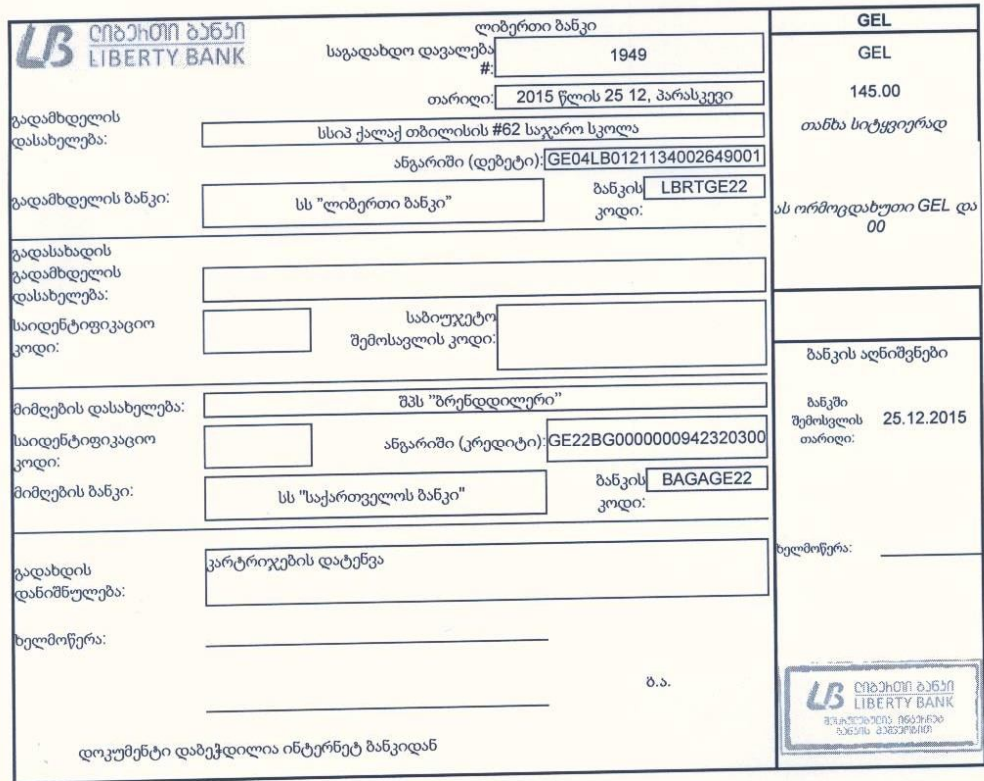 ლიბერთი ბანკი
LIBERTY BANK
ლიბერთი ბანკი
საგადახდო დავალება #: 1949
თარიღი: 2015 წლის 25 12, პარასკევი
გადამხდელის დასახელება: სსიპ ქალაქ თბილისის #62 საჯარო სკოლა
ანგარიში (დებეტი): GE04LB0121134002649001
გადამხდელის ბანკი: სს "ლიბერთი ბანკი"
ბანკის კოდი: LBRTGE22
გადასახადის გადამხდელის დასახელება:
საიდენტიფიკაციო კოდი:
საბიუჯეტო შემოსავლის კოდი:
მიმღების დასახელება: შპს "ბრენდდილერი"
საიდენტიფიკაციო კოდი:
ანგარიში (კრედიტი): GE22BG0000000942320300
მიმღების ბანკი: სს "საქართველოს ბანკი"
ბანკის კოდი: BAGAGE22
გადახდის დანიშნულება: კარტრიჯების დატენვა
ხელმოწერა:
ბ.ა.
დოკუმენტი დაბეჭდილია ინტერნეტ ბანკიდან
GEL
GEL
145.00
თანხა სიტყვიერად
ას ორმოცდახუთი GEL და
00
ბანკის აღნიშვნები
ბანკში შემოსვლის თარიღი: 25.12.2015
ხელმოწერა:
ლიბერთი ბანკი
LIBERTY BANK
შესრულებულია ინტერნეტ
ბანკის მეშვეობით